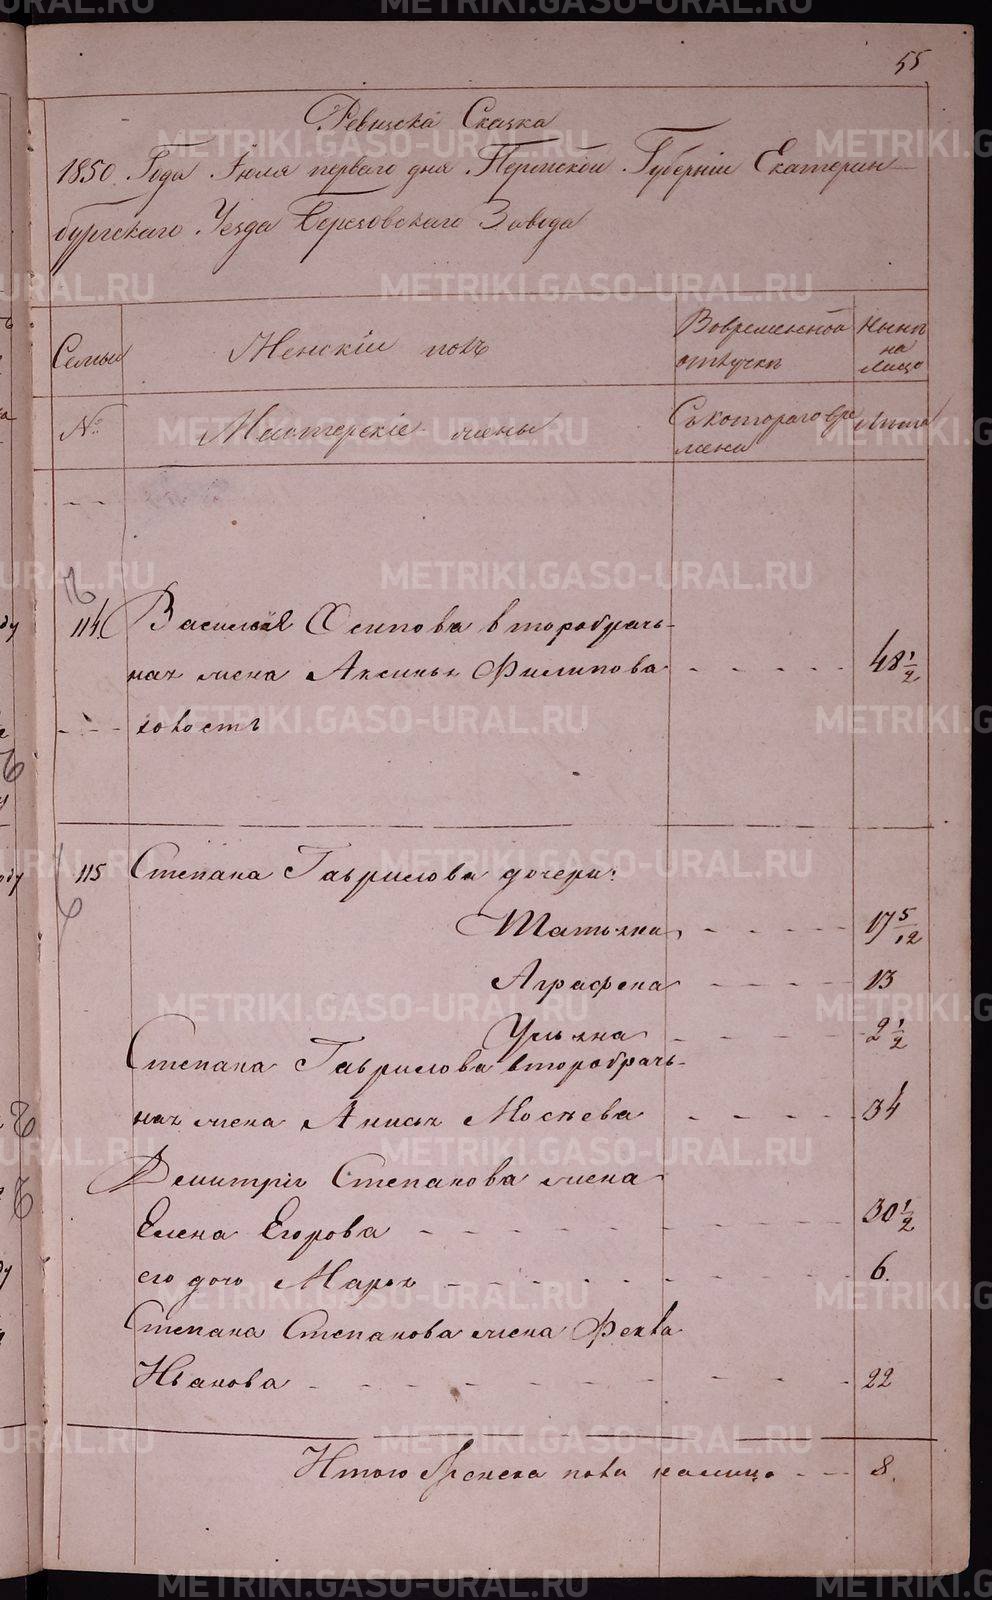 55
Ревизска Сказка
1850 Года Июля первого дня Пермской Губернiи Екатерин
бургскаго Уезда Березовскаго Завода
Семьи
Женскiи полъ
Вовременной отлучки
Ныне на лицо
№
Мастерскiе жены
Съ котораго вре
мени
Лета
114. Василья Осипова второбрачь-
ная жена Аксинья Филипова - - - - - 48 1/2
холостъ
115 Степана Гаврилова дочери:
Татьяна - - - - 17 5/12
Аграфена - - - - 13
Ульяна - - - - 2 1/2
Степана Гаврилова второбрачь-
ная жена Анисья Мосѣева - - - - - 34
Демитрiя Степанова жена
Елена Егорова - - - - - 30 1/2
его дочь Марья - - - - - 6.
Степана Степанова жена Фекла
Иванова - - - - - 22
Итого Женска пола налицо - - - 8.
METRIKI.GASO-URAL.RU